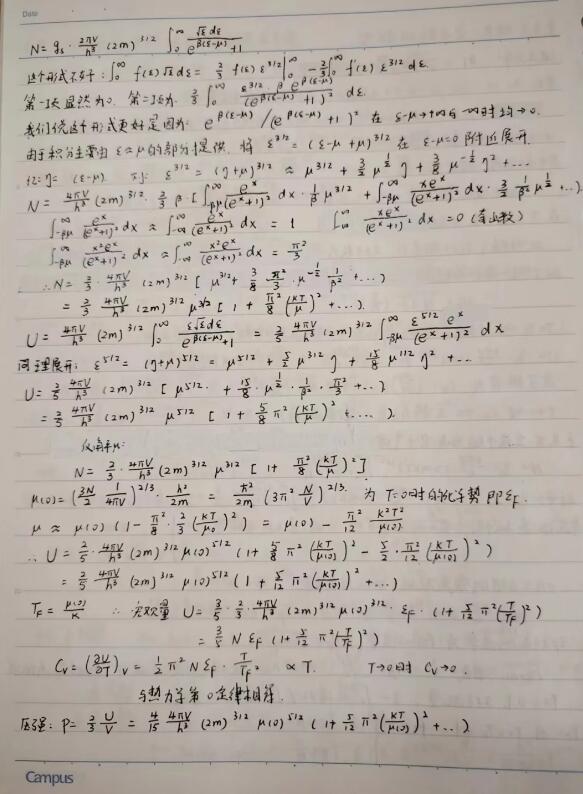 Date
N = g_s · 2πV/h³ (2m)^{3/2} ∫_0^∞ √ε dε / (e^{β(ε-μ)}+1)
这个形式不好于: ∫_0^∞ f(ε)√ε dε = 2/3 f(ε) ε^{3/2} |_0^∞ - 2/3 ∫_0^∞ f'(ε) ε^{3/2} dε.
第一项显然为0. 第二项为: 2/3 ∫_0^∞ ε^{3/2} · β e^{β(ε-μ)} / (e^{β(ε-μ)}+1)² dε.
我们说这个形式更好是因为: e^{β(ε-μ)}/(e^{β(ε-μ)}+1)² 在 ε-μ→+∞与-∞时均→0.
由于积分主要由 ε≈μ的部分提供. 将 ε^{3/2} = (ε-μ+μ)^{3/2} 在 ε-μ=0 附近展开.
记: η = (ε-μ). ε^{3/2} = (η+μ)^{3/2} ≈ μ^{3/2} + 3/2 μ^{1/2} η + 3/8 μ^{-1/2} η² + ...
N = 4πV/h³ (2m)^{3/2} · 2/3 β · [∫_{-βμ}^∞ e^x/(e^x+1)² dx · 1/β μ^{3/2} + ∫_{-βμ}^∞ xe^x/(e^x+1)² dx · 3/2 1/β² μ^{1/2} + ...]
∫_{-βμ}^∞ e^x/(e^x+1)² dx ≈ ∫_{-∞}^∞ e^x/(e^x+1)² dx = 1 ∫_{-∞}^∞ xe^x/(e^x+1)² dx = 0 (奇函数)
∫_{-βμ}^∞ x²e^x/(e^x+1)² dx ≈ ∫_{-∞}^∞ x²e^x/(e^x+1)² dx = π²/3
∴N = 2/3 · 4πV/h³ (2m)^{3/2} [μ^{3/2} + 3/8 · π²/3 · μ^{-1/2} 1/β² + ...)
= 2/3 · 4πV/h³ (2m)^{3/2} μ^{3/2} [1 + π²/8 (kT/μ)² + ...).
U = 4πV/h³ (2m)^{3/2} ∫_0^∞ ε√ε dε/(e^{β(ε-μ)}+1) = 2/5 4πV/h³ (2m)^{3/2} ∫_{-βμ}^∞ ε^{5/2} e^x/(e^x+1)² dx
同理展开: ε^{5/2} = (η+μ)^{5/2} = μ^{5/2} + 5/2 μ^{3/2} η + 15/8 μ^{1/2} η² + ...
U = 2/5 4πV/h³ (2m)^{3/2} [μ^{5/2} + 15/8 · μ^{1/2} · 1/β² · π²/3 + ...).
= 2/5 · 4πV/h³ (2m)^{3/2} μ^{5/2} [1 + 5/8 π² (kT/μ)² + ....).
N = 2/3 · 4πV/h³ (2m)^{3/2} μ^{3/2} [1 + π²/8 (kT/μ)²].
μ(0) = (3N/2 1/4πV)^{2/3} · h²/2m = ħ²/2m (3π² N/V)^{2/3}. 为 T=0时的化学势 即ε_F.
μ ≈ μ(0) (1 - π²/8 · 2/3 (kT/μ0)²) = μ(0) - π²/12 k²T²/μ(0).
∴ U = 2/5 · 4πV/h³ (2m)^{3/2} μ(0)^{5/2} (1 + 5/8 π² (kT/μ(0))² - 5/2 · π²/12 (kT/μ(0))²)
= 2/5 4πV/h³ (2m)^{3/2} μ(0)^{5/2} (1 + 5/12 π² (kT/μ(0))² + ...)
T_F = μ(0)/k ∴ U = 3/5 · 2/3 · 4πV/h³ (2m)^{3/2} μ(0)^{3/2} · ε_F · (1 + 5/12 π² (T/T_F)²)
= 3/5 N ε_F (1 + 5/12 π² (T/T_F)²)
C_V = (∂U/∂T)_V = 1/2 π² N ε_F · T/T_F² ∝ T. T→0时 C_V→0.
与热力学第0定律相符.
压强: P = 2/3 U/V = 4/15 4πV/h³ (2m)^{3/2} μ(0)^{5/2} (1 + 5/12 π² (kT/μ(0))² + ...)
Campus